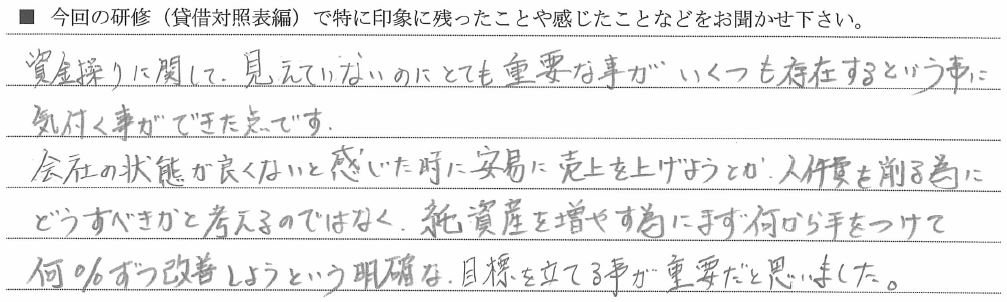 ■ 今回の研修（貸借対照表編）で特に印象に残ったことや感じたことなどをお聞かせ下さい。
資金操りに関して、見えていないのにとても重要な事がいくつも存在するという事に
気付く事ができた点です。
会社の状態が良くないと感じた時に安易に売上を上げようとか、人件費を削る為に
どうすべきかと考えるのではなく、純資産を増やす為にまず何から手をつけて
何%ずつ改善しようという明確な、目標を立てる事が重要だと思いました。